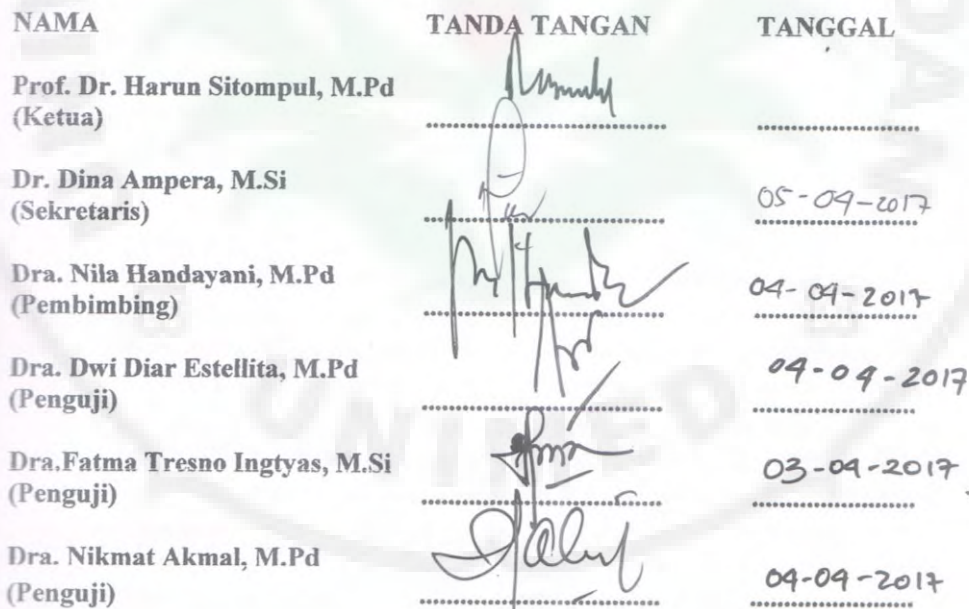 NAMA TANDA TANGAN TANGGAL
Prof. Dr. Harun Sitompul, M.Pd
(Ketua)
Dr. Dina Ampera, M.Si
(Sekretaris) 05-04-2017
Dra. Nila Handayani, M.Pd
(Pembimbing) 04-04-2017
Dra. Dwi Diar Estellita, M.Pd 04-04-2017
(Penguji)
Dra.Fatma Tresno Ingtyas, M.Si 03-04-2017
(Penguji)
Dra. Nikmat Akmal, M.Pd
(Penguji) 04-04-2017
UNIMED